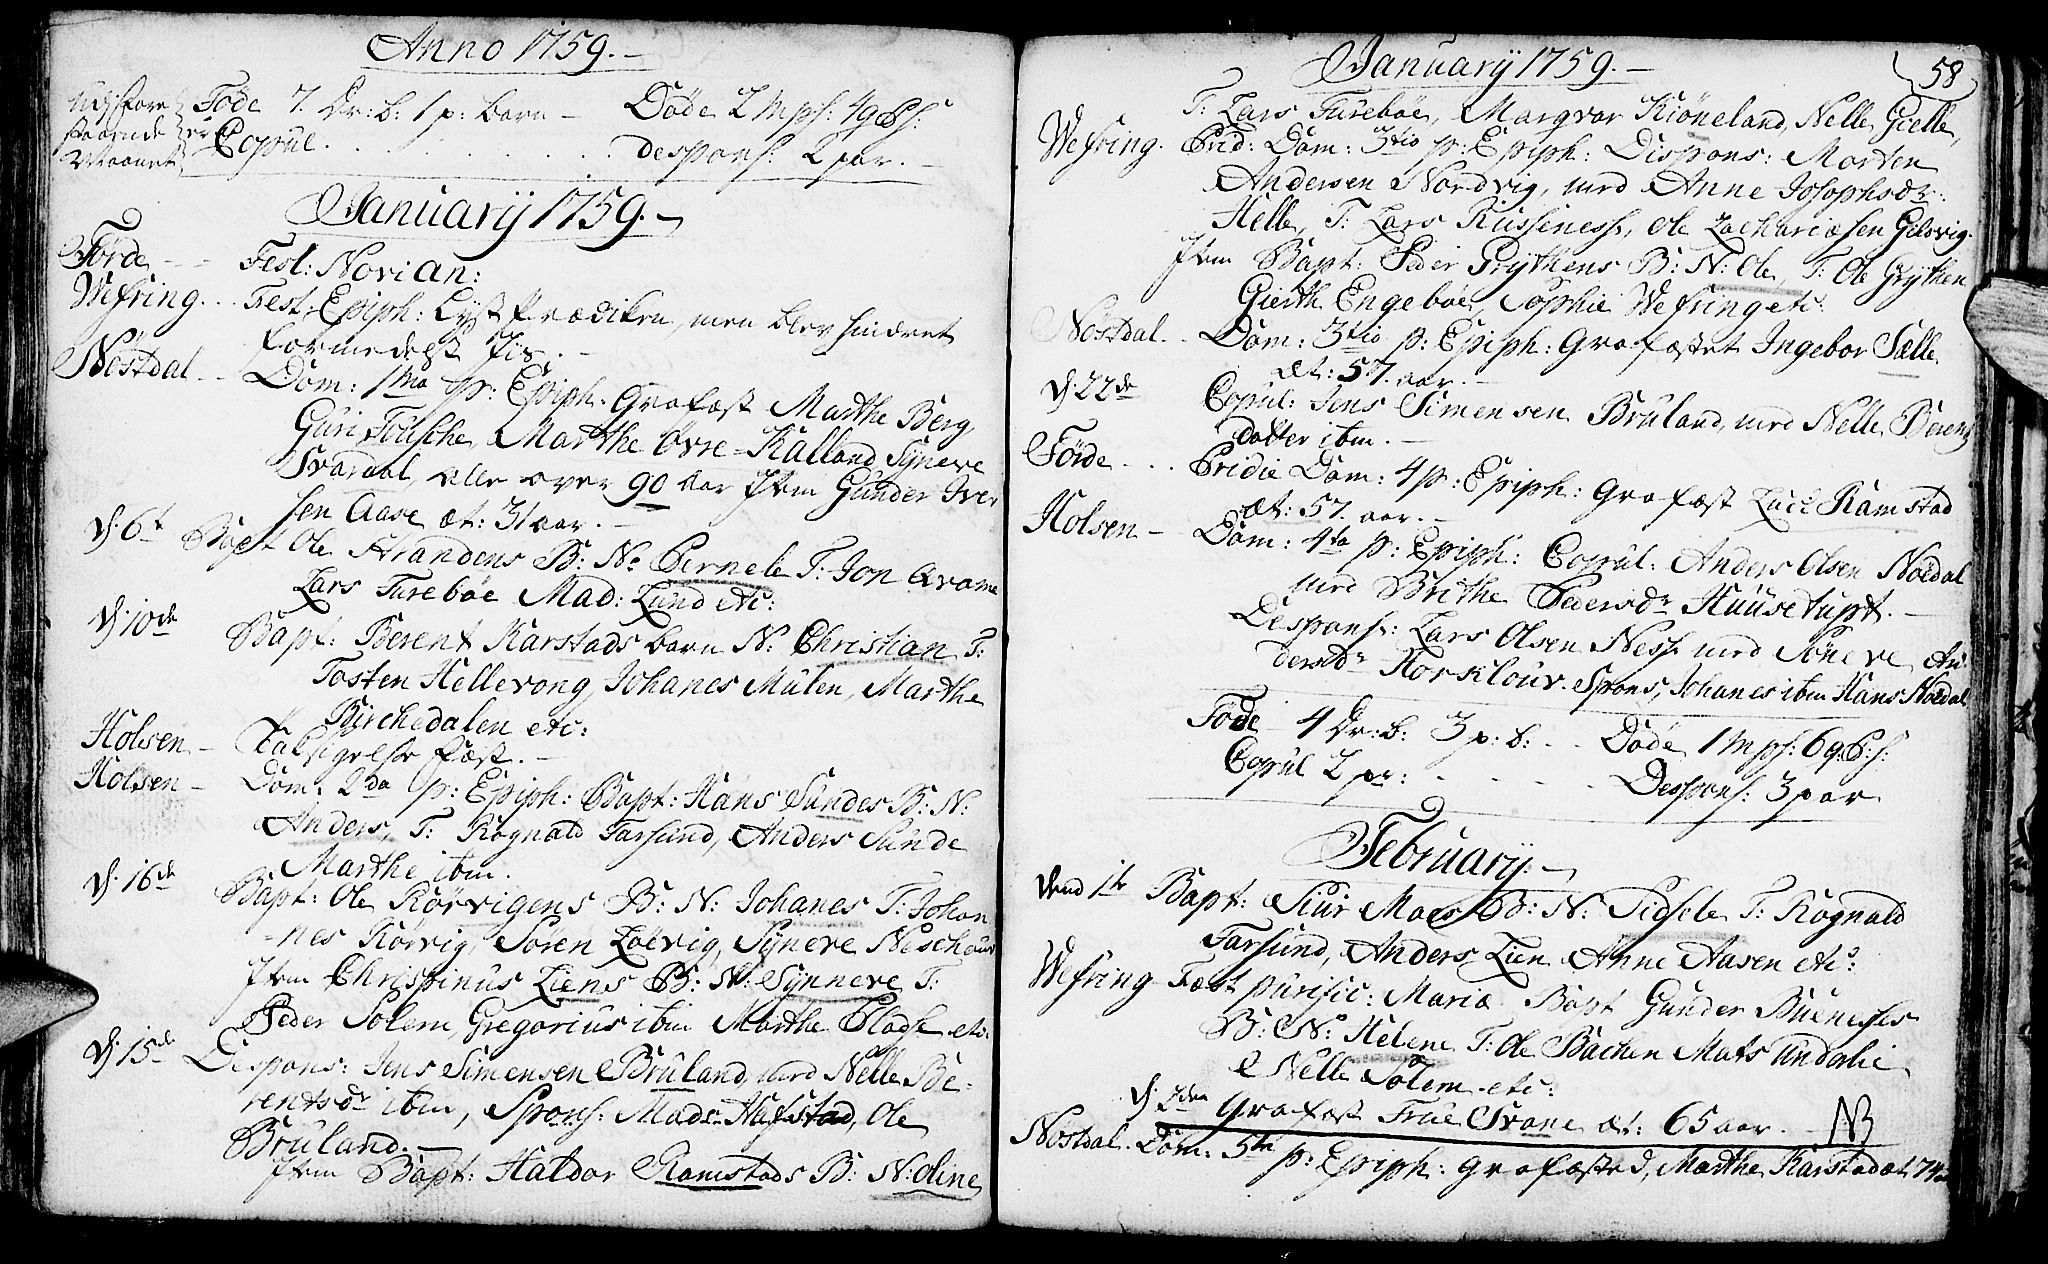 Anno 1759.
Födde 7. Dr: b: 1 p: barn Döde 2 Mps: 4 q Ps:
er Copul. Despons: 2 par.
Januarij 1759.
Förde Fest: Novi an:
Wefring Fest. Epiph: Lyst Prædiken, men blev hindret
formedelst Jis.
Nöstdal Dom: 1ma p: Epiph: Grafæst Marthe Berg,
Guri Tousche, Marthe Övre=Kalland Syneve
Svardal, alle over 90 Aar Item Gunder Iver
sen Aase æt: 31 aar.
d. 6t Bapt Ole Strandens B: N: Pernele T: Jon Qvame
Lars Furebøe Mad: Lund etc:
d. 10de Bapt: Berent Karstads barn N: Christian T:
Tosten Hellevong, Johanes Mulen, Marthe
Birchedalen etc:
Holsen Taksigelse fæst.
Holsen Dom: 2da p: Epiph: Bapt: Hans Sundes B: N:
Anders, T: Rognald Farsund, Anders Sunde
Marthe ibm.
d. 16de Bapt: Ole Rörvigens B: N: Johanes T: Johan
nes Rörvig, Sören Loevig, Syneve
Item Christinus Liens B: N: Synneve T:
Peder Solem, Gregorius ibm Marthe Pladse etc.
d. 15de Despons: Jens Simensen Bruland, med Nelle Be-
rentsdr ibm, Spons: Mads Hafstad, Ole
Bruland.
Item Bapt: Haldor Ramstads B: N: Oline
Januarij 1759. 58
T: Lars Furebøe, Margvar Kiöneland, Nelle Gielle,
Wefring. Prid: Dom: 3tio p: Epiph: Dispons: Morten
Andersen Nordvig, med Anne Josophsdr:
Helle, T: Lars Russeness, Ole Zachariæsen Gelsvig.
Item Bapt: Peder Grythens B: N: Ole, T: Ole Grythen
Gierth Engebøe, Sophie Wefring etc:
Nöstdal Dom: 3tio p: Epiph: Grafæstet Ingebor Sælle
æt: 57. aar.
d. 22de Copul: Jens Simensen Bruland, med Nelle Berentz
datter ibm.
Förde Pridie Dom: 4 p: Epiph: Grafæst Ramstad
æt: 57. aar.
Holsen Dom: 4ta p: Epiph: Copul: Anders Olsen Noedal
med Brithe Pedersdr Huusetupt.
Despons: Lars Olsen Ness med Söneve An
dersdr Horsklour. Spons, Johanes ibm Hans Noedal
Föde 4 Dr: b: 3 p: b: Döde 1 Mps: 6 q: P: s:
Copul 2 pr: Despons: 3 par
February.
dend 1te Bapt: Siur Moes B: N: Sidsele T: Rognald
Farsund, Anders Lien Anne Aasen etc:
Wefring Fæst purific: Mariæ Bapt Gunder Bueneses
B: N: Helene T: Ole Bachen Mats Undalie
Nelle Solem etc:
d. 2den Grafæst Frue Svane æt: 65 aar. NB
Nöstdal. Dom: 5ta p: Epiph: Grafæsted, Marthe Karstad æt 74